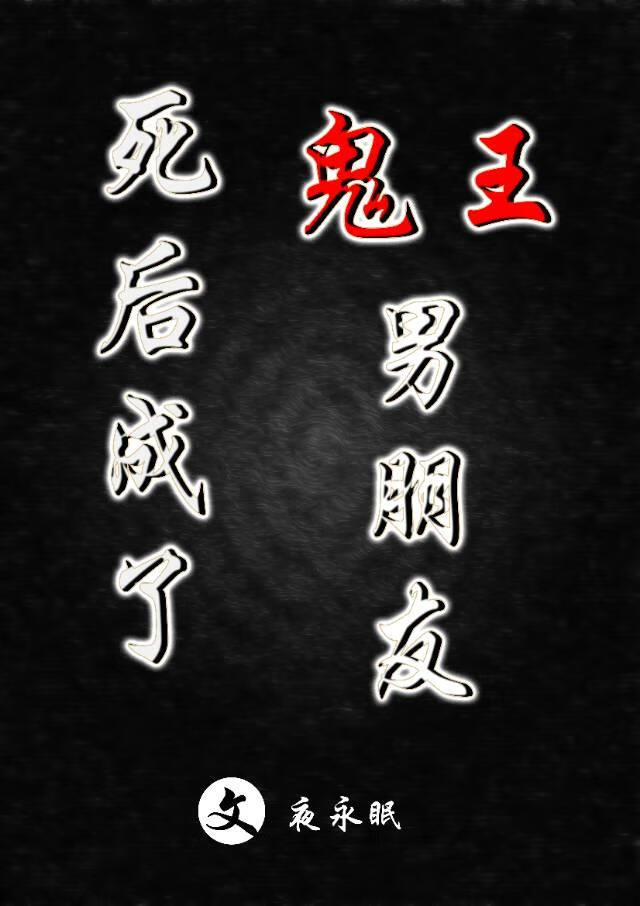 男朋友
死后成了
鬼王
文 夜永眠